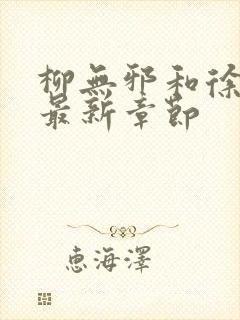 柳無邪和徐
最新章節
惠海澤